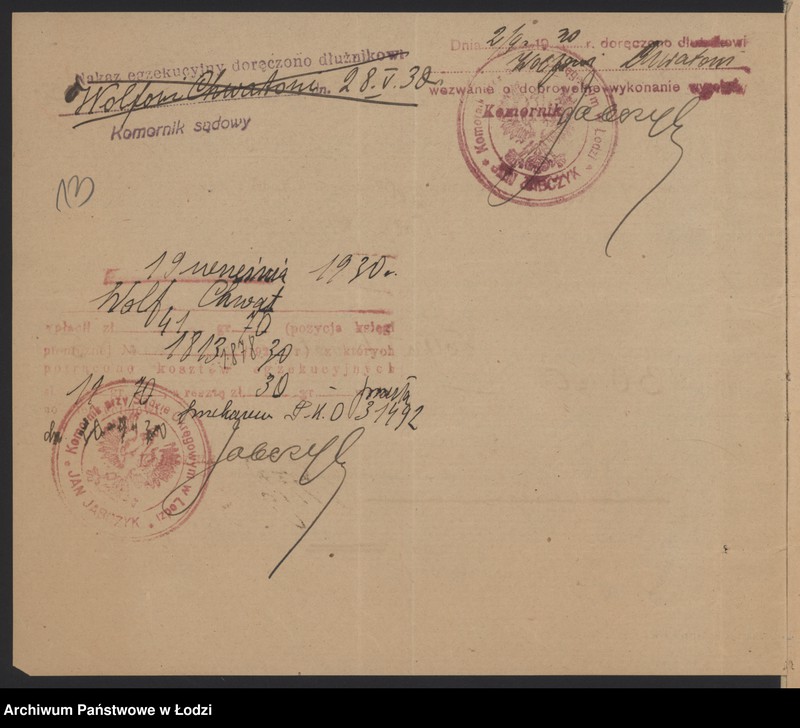 Nakaz egzekucyjny doręczono dłużnikowi
Wolfowi Chwatowi dn. 28.V.30
Komornik sądowy
Dnia 2/6 1930 r. doręczono dłużnikowi
Wolfowi Chwatowi
wezwanie o dobrowolne wykonanie
Komornik
Jabczyk
JAN JABCZYK
13
19 września 1930 r.
Wolf Chwat
wpłacił zł. 41 gr. 70 (pozycja księgi
pieniężnej № 1813 30 z których
potrącono kosztów egzekucyjnych
11 70 resztę zł. 30 gr. –
przekazem P.K.O 31492
Jabczyk
Komornik przy Sądzie Okręgowym w Łodzi
JAN JABCZYK
Archiwum Państwowe w Łodzi